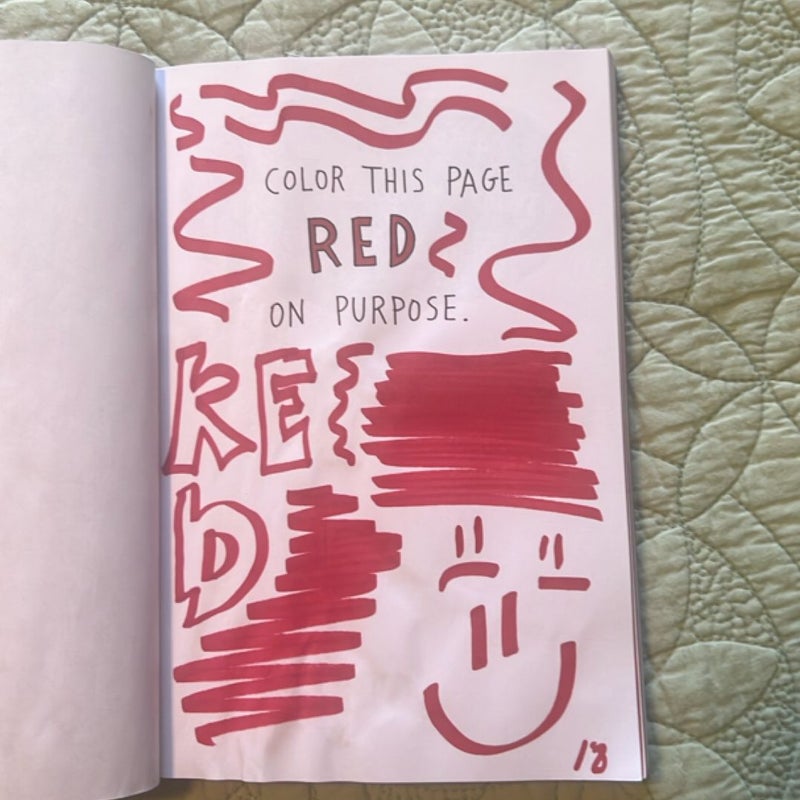 COLOR THIS PAGE
RED
ON PURPOSE.
RE
D
18